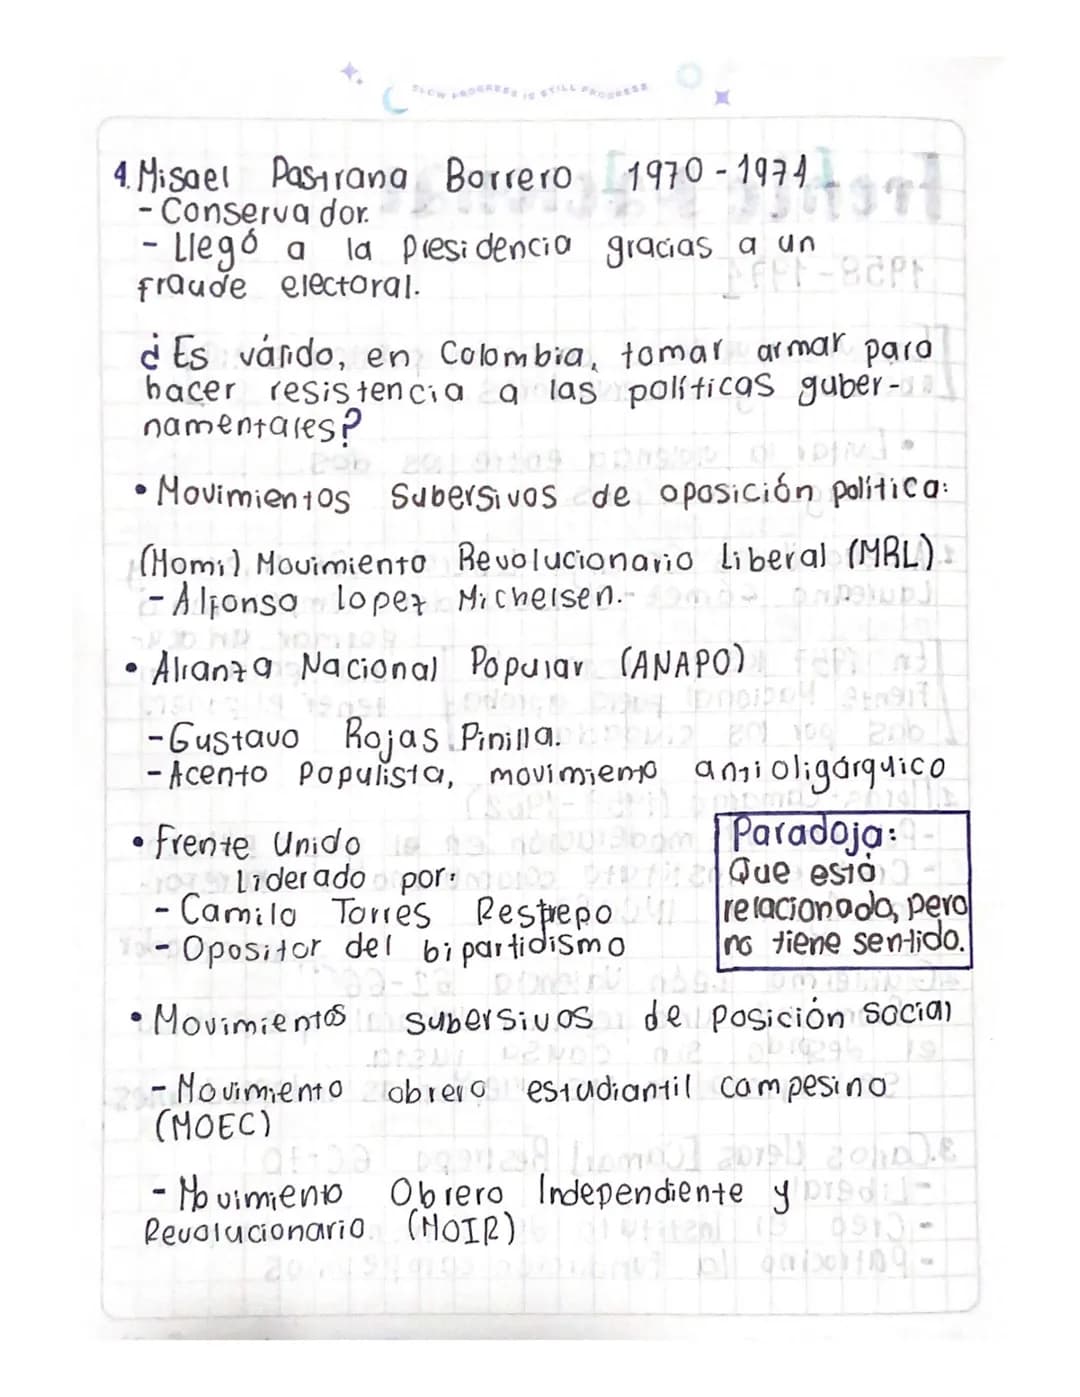 SLOW PROGRESS IS STILL PROGRESS
4. Misael Pastrana Borrero [1970-1974]
- Conservador.
- Llegó a la presidencia gracias a un
fraude electoral.
¿Es válido, en Colombia, tomar armar para
hacer resistencia a las políticas guber-
namentales?
• Movimientos Subersivos de oposición política:
(Homi) Movimiento Revolucionario Liberal (MRL)
- Alfonso lopez Michelsen.
• Alianza Nacional Popular (ANAPO)
- Gustavo Rojas Pinilla.
- Acento Populista, movimiento antioligárquico
• Frente Unido
Liderado por:
- Camilo Torres Restrepo
- Opositor del bipartidismo
Paradoja:
Que está
relacionado, pero
no tiene sentido.
• Movimientos subersivos de posición social
- Movimiento obrero estudiantil campesino
(MOEC)
- Movimiento Obrero Independiente y
Revolucionario (MOIR)